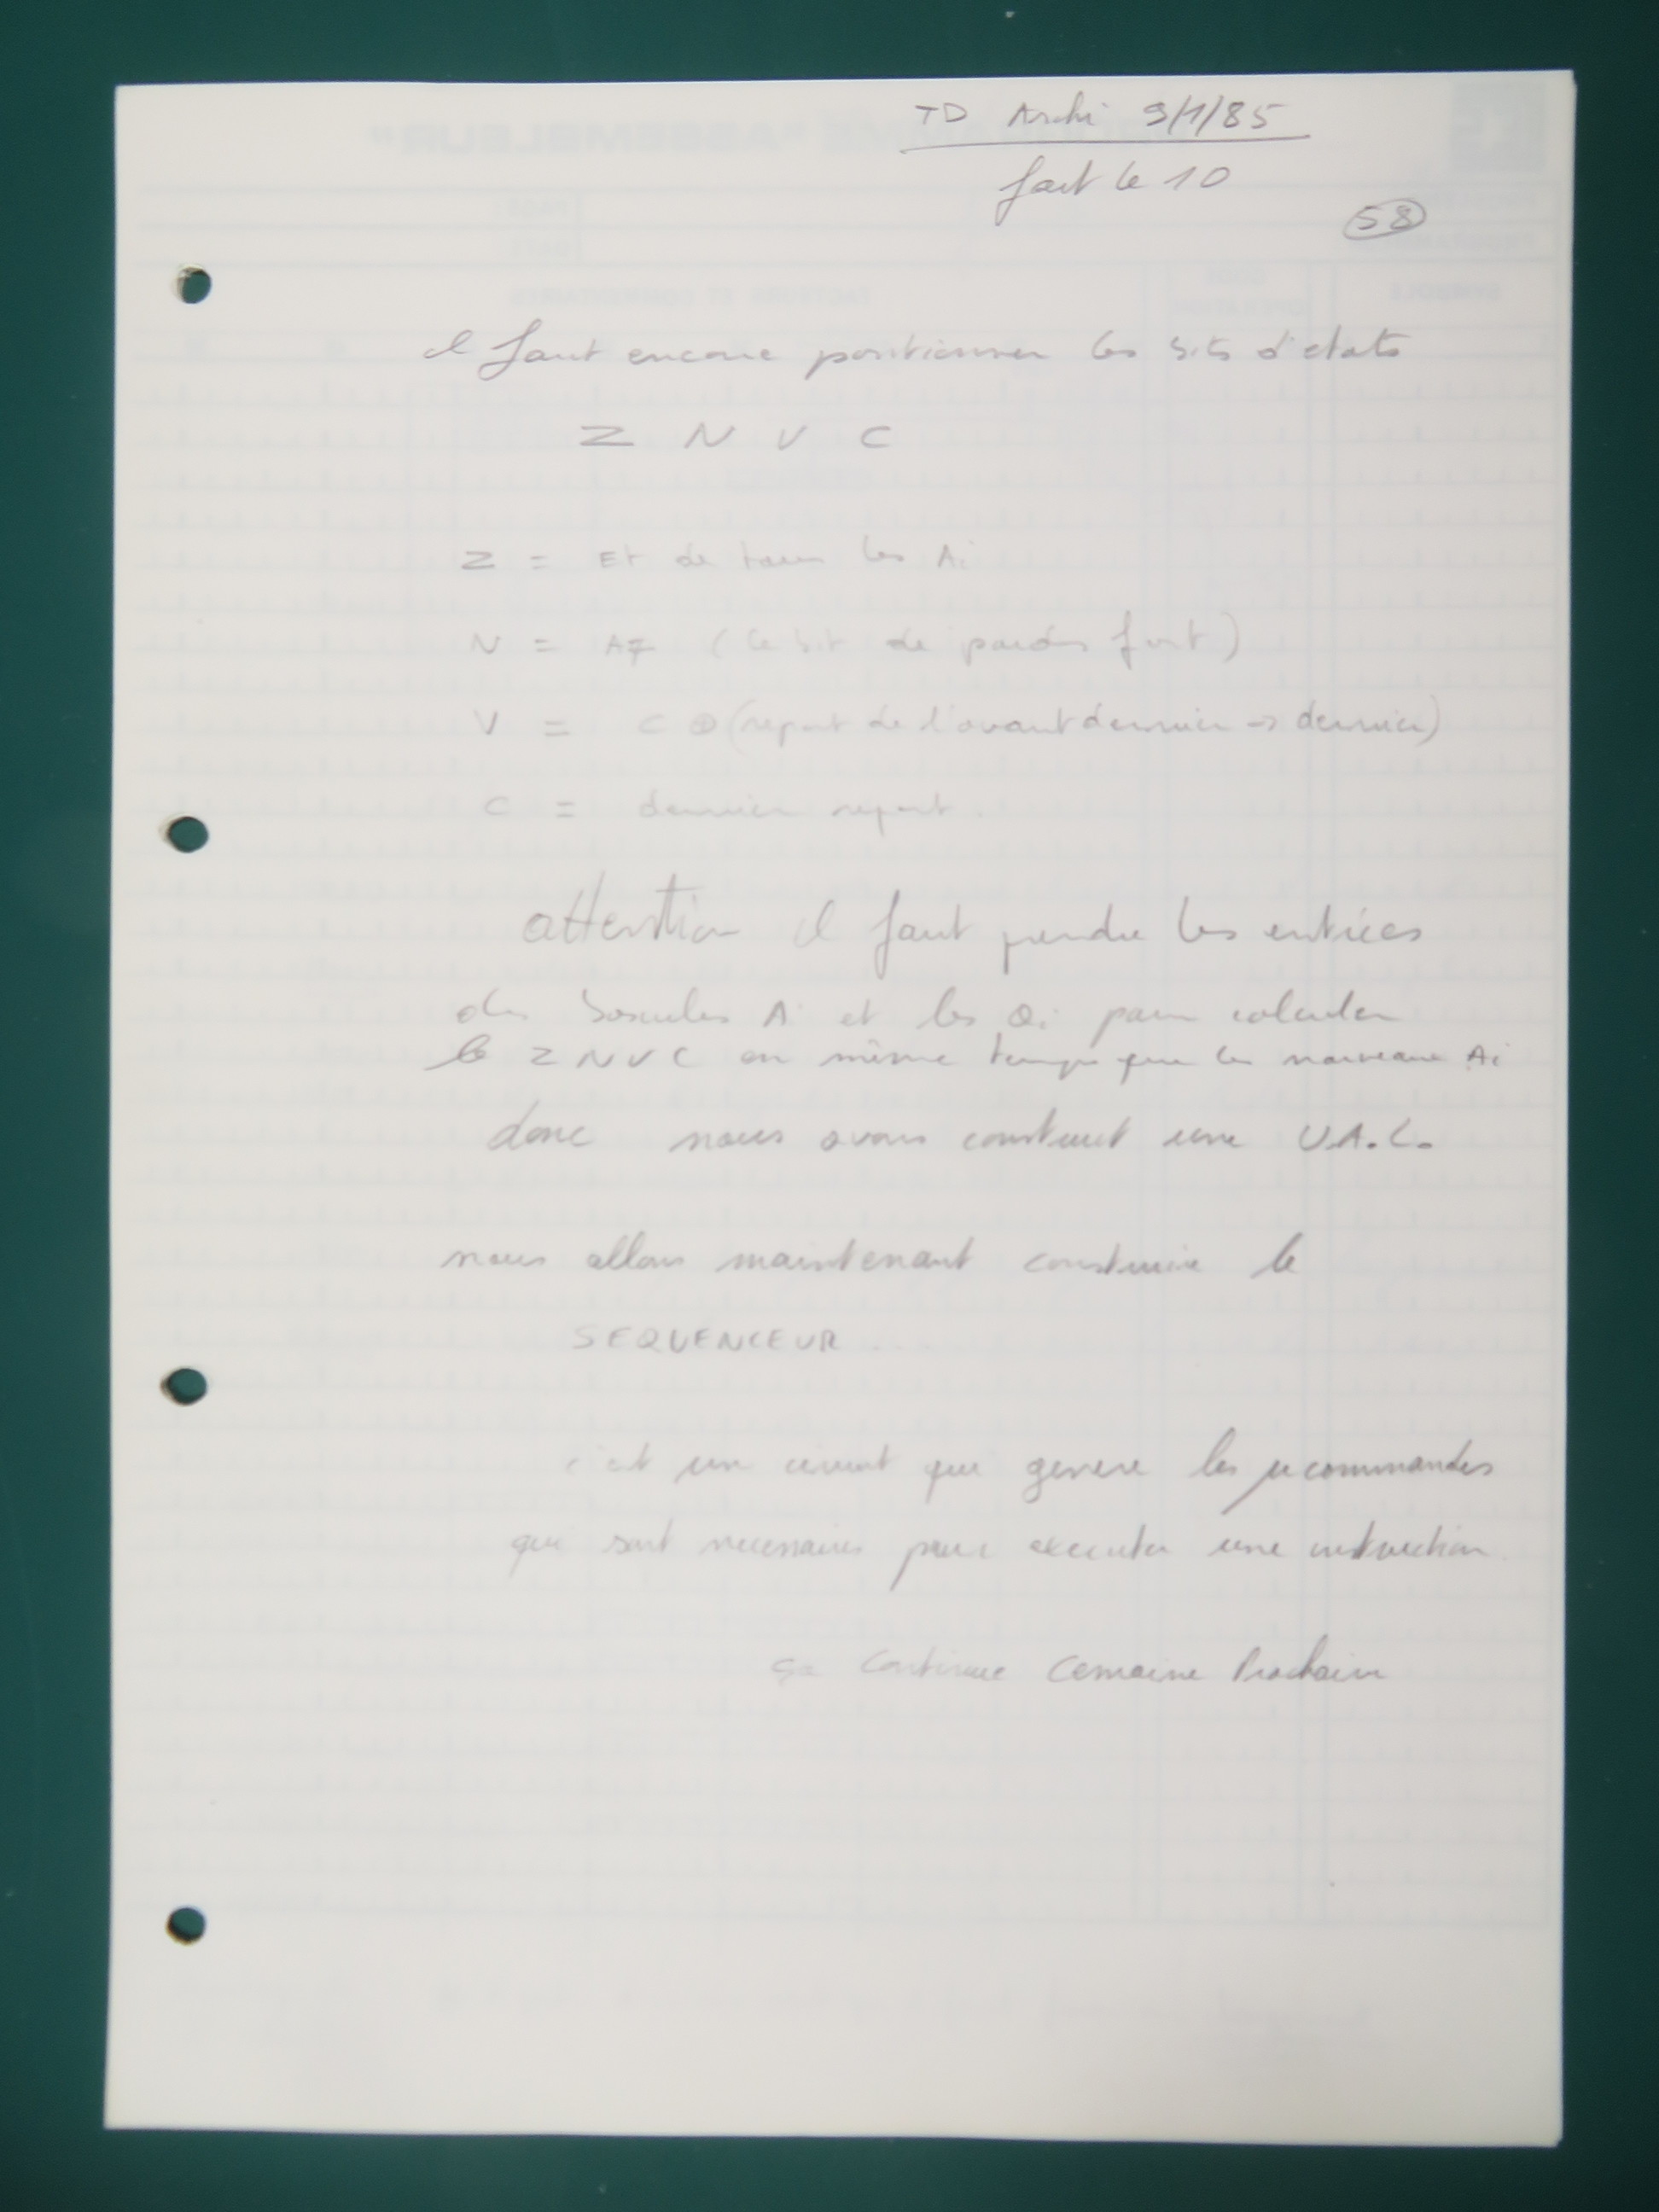 TD Archi 9/1/85
fait le 10
58
il faut encore positionner les bits d'etats
Z N V C
Z = Et de tous les Ai
N = A7 (le bit de poids fort)
V = C ⊕ (report de l'avant dernier → dernier)
C = dernier report.
attention il faut prendre les entrées
des bascules Ai et les Qi pour calculer
le Z N V C en même temps que les nouveaux Ai
donc nous avons construit une U.A.L.
nous allons maintenant construire le
SEQUENCEUR ...
c'est un circuit qui genere les μcommandes
qui sont necessaires pour executer une instruction
ça continue Cemaine Prochaine